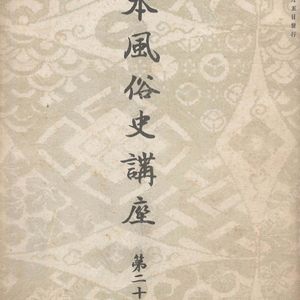 本風俗史講座
第二十